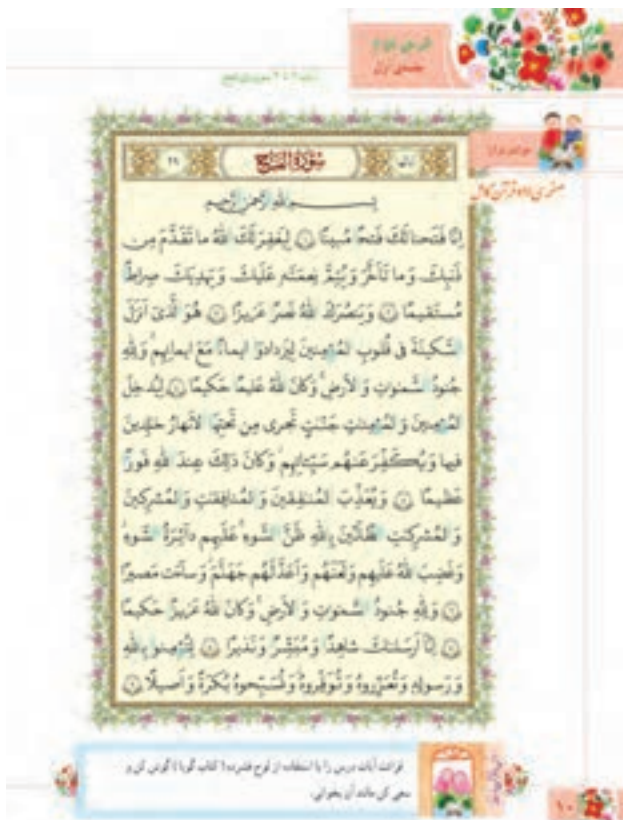 سُورَةُ الفَتْح
بِسْمِ اللهِ الرَّحْمٰنِ الرَّحيمِ
اِنّا فَتَحنا لَكَ فَتحًا مُبينًا ۝۱ لِيَغفِرَ لَكَ اللهُ ما تَقَدَّمَ مِن
ذَنبِكَ وَ ما تَاَخَّرَ وَ يُتِمَّ نِعمَتَهٗ عَلَيكَ وَ يَهدِيَكَ صِراطًا
مُستَقيمًا ۝۲ وَ يَنصُرَكَ اللهُ نَصرًا عَزيزًا ۝۳ هُوَ الَّذى اَنزَلَ
السَّكينَةَ فى قُلوبِ المُؤمِنينَ لِيَزدادوا ايمانًا مَعَ ايمانِهِم وَ لِلّٰهِ
جُنودُ السَّمٰوٰتِ وَ الاَرضِ وَ كانَ اللهُ عَليمًا حَكيمًا ۝۴ لِيُدخِلَ
المُؤمِنينَ وَ المُؤمِنٰتِ جَنّٰتٍ تَجرى مِن تَحتِهَا الاَنهارُ خٰلِدينَ
فيها وَ يُكَفِّرَ عَنهُم سَيِّئاتِهِم وَ كانَ ذٰلِكَ عِندَ اللهِ فَوزًا
عَظيمًا ۝۵ وَ يُعَذِّبَ المُنافِقينَ وَ المُنافِقٰتِ وَ المُشرِكينَ
وَ المُشرِكٰتِ الظّانّينَ بِاللهِ ظَنَّ السَّوءِ عَلَيهِم دائِرَةُ السَّوءِ
وَ غَضِبَ اللهُ عَلَيهِم وَ لَعَنَهُم وَ اَعَدَّ لَهُم جَهَنَّمَ وَ ساءَت مَصيرًا
۝۶ وَ لِلّٰهِ جُنودُ السَّمٰوٰتِ وَ الاَرضِ وَ كانَ اللهُ عَزيزًا حَكيمًا
۝۷ اِنّا اَرسَلنٰكَ شاهِدًا وَ مُبَشِّرًا وَ نَذيرًا ۝۸ لِتُؤمِنوا بِاللهِ
وَ رَسولِهٖ وَ تُعَزِّروهُ وَ تُوَقِّروهُ وَ تُسَبِّحوهُ بُكرَةً وَ اَصيلًا ۝۹
قرائت آیات درس را با استفاده از لوح فشرده ( کتاب گویا ) گوش کن و
سعی کن مانند آن بخوانی.
۱۰